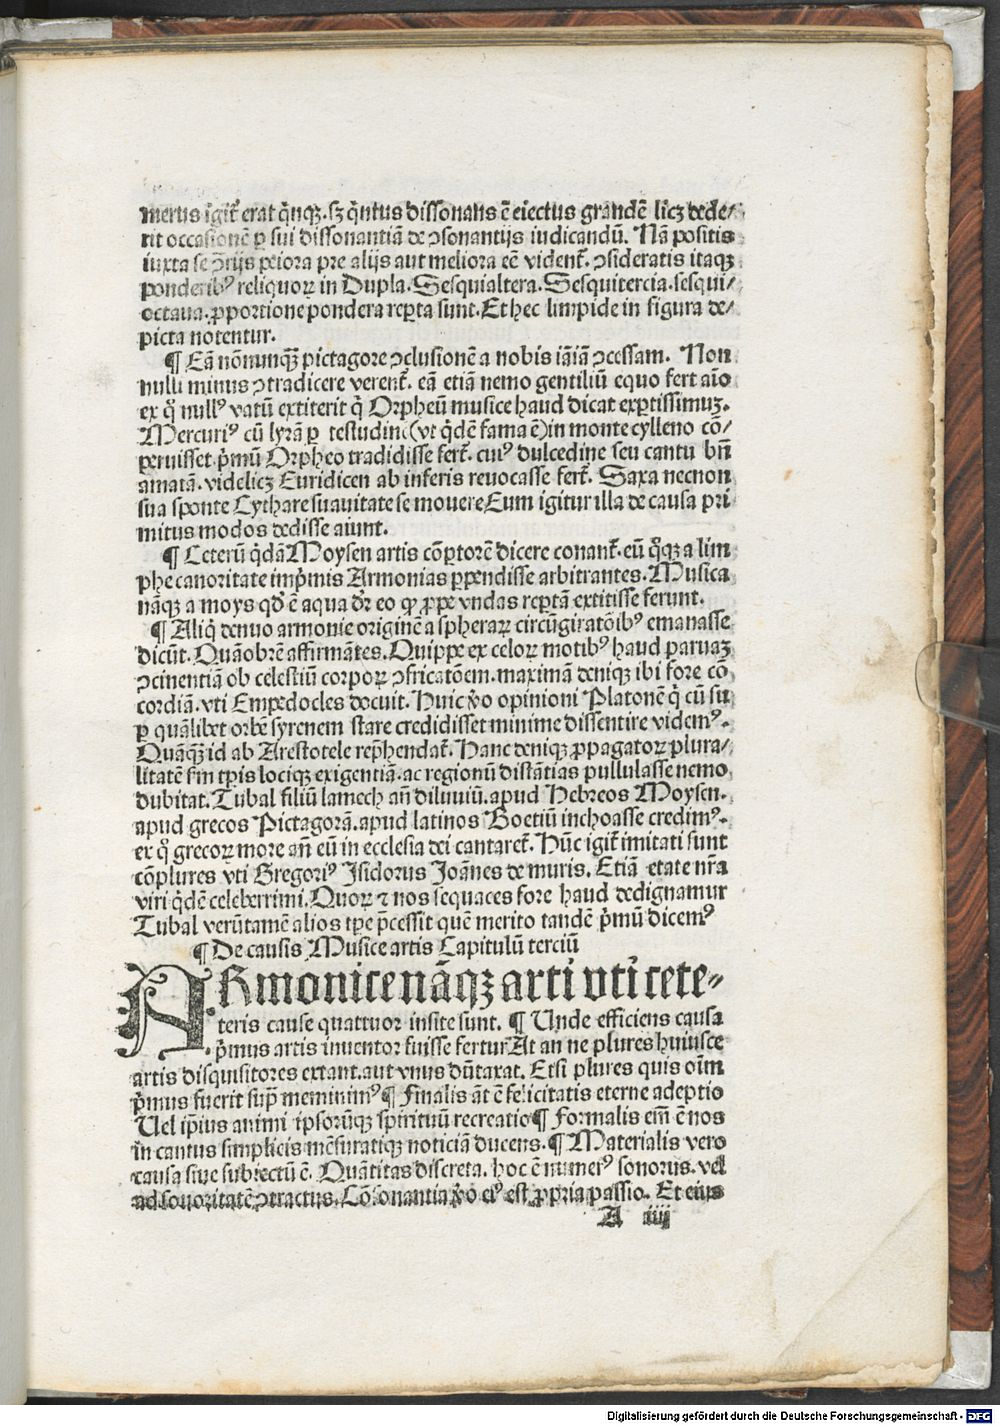 merus igit᷑ erat q̇nqꝫ. sꝫ q̇ntus dissonans ē eiectus grandē licꝫ dede⸗
rit occasionē ꝑ sui dissonantiā de ꝯsonantijs iudicandū. Nā positis
iuxta se ꝯ̄rijs peiora pre alijs aut meliora eē vident᷑. ꝯsideratis itaqꝫ
ponderibꝰ reliquoꝝ in Dupla. Sesquialtera. Sesquitercia. sesqui⸗
octaua. ꝓportione pondera reꝑta sunt. Et hec limpide in figura de⸗
picta notentur.
¶ Eā nōnunqꝫ̄ pictagore ꝯclusionē a nobis iāiā ꝯcessam. Non
nulli minus ꝯtradicere verent᷑. eā etiā nemo gentiliū equo fert aīo
ex qͦ nullꝰ vatū extiterit q̇ Orpheū musice haud dicat exꝑtissimuꝫ.
Mercuriꝰ cū lyrā ꝑ testudinē (vt q̇dē fama ē) in monte cylleno cō⸗
ꝑeruisset. ṗmū Orpheo tradidisse fert᷑. cuiꝰ dulcedine seu cantu bn̄
amatā. videlicꝫ Euridicen ab inferis reuocasse fert᷑. Saxa necnon
sua sponte Cythare suauitate se mouere Eum igitur illa de causa pri
mitus modos dedisse aiunt.
¶ Ceterū q̇dā Moysen artis cōptorē dicere conant᷑. eū qͦqꝫ a lim
phe canoritate imṗmis Armonias ꝑpendisse arbitrantes. Musica
nāqꝫ a moys qd̓ ē aqua dr̄ eo ꝙ ꝓpe vndas reꝑtā extitisse ferunt.
¶ Aliq̇ denuo armonie originē a spheraꝝ circūgiratōibꝰ emanasse
dicūt. Quāobrē affirmātes. Quippe ex celoꝝ motibꝰ haud paruaꝫ
ꝯcinentiā ob celestiū corpoꝝ ꝯfricatōem. maximā deniqꝫ ibi fore cō
cordiā. vti Empedocles docuit. Huic ṽo opinioni Platonē q̇ cū su
ꝑ quālibet orbē syrenem stare credidisset minime dissentire videmꝰ.
Quāqꝫ̄ id ab Arestotele rep̄hendat᷑. Hanc deniqꝫ ꝓpagatoꝝ plura⸗
litatē fm̄ tp̄is lociqꝫ exigentiā. ac regionū distātias pullulasse nemo
dubitat. Tubal filiū lamech an̄ diluuiū. apud Hebreos Moysen.
apud grecos Pictagorā. apud latinos Boetiū inchoasse credimꝰ.
ex qͦ grecoꝝ more an̄ eū in ecclesia dei cantaret᷑. Hūc igit᷑ imitati sunt
cōplures vti Gregoriꝰ Isidorus Joānes de muris. Etiā etate nr̄a
viri q̇dē celeberrimi. Quoꝝ ⁊ nos sequaces fore haud dedignamur
Tubal verūtamē alios tp̄e p̄cessit quē merito tandē ṗmū dicemꝰ
¶ De causis Musice artis Capitulū terciū
ARmonice nāqꝫ arti vti cete⸗
teris cause quattuor insite sunt. ¶ Unde efficiens causa
ṗmus artis inuentor fuisse fertur At an ne plures huiusce
artis disquisitores extant. aut vnus dūtaxat. Etsi plures quis oīm
ṗmus fuerit sup̄ meminimꝰ ¶ Finalis āt ē felicitatis eterne adeptio
Uel ip̄ius animi ipsorūqꝫ spirituū recreatio ¶ Formalis em̄ ē nos
in cantus simplicis mēsuratiqꝫ noticiā ducens. ¶ Materialis vero
causa siue subiectū ē. Quātitas discreta. hoc ē numerꝰ sonorus. vel
ad sonoritatē ꝯtractus. Cōsonantia ṽo eiꝰ est ꝓpria passio. Et eius
A iiij
Digitalisierung gefördert durch die Deutsche Forschungsgemeinschaft - DFG